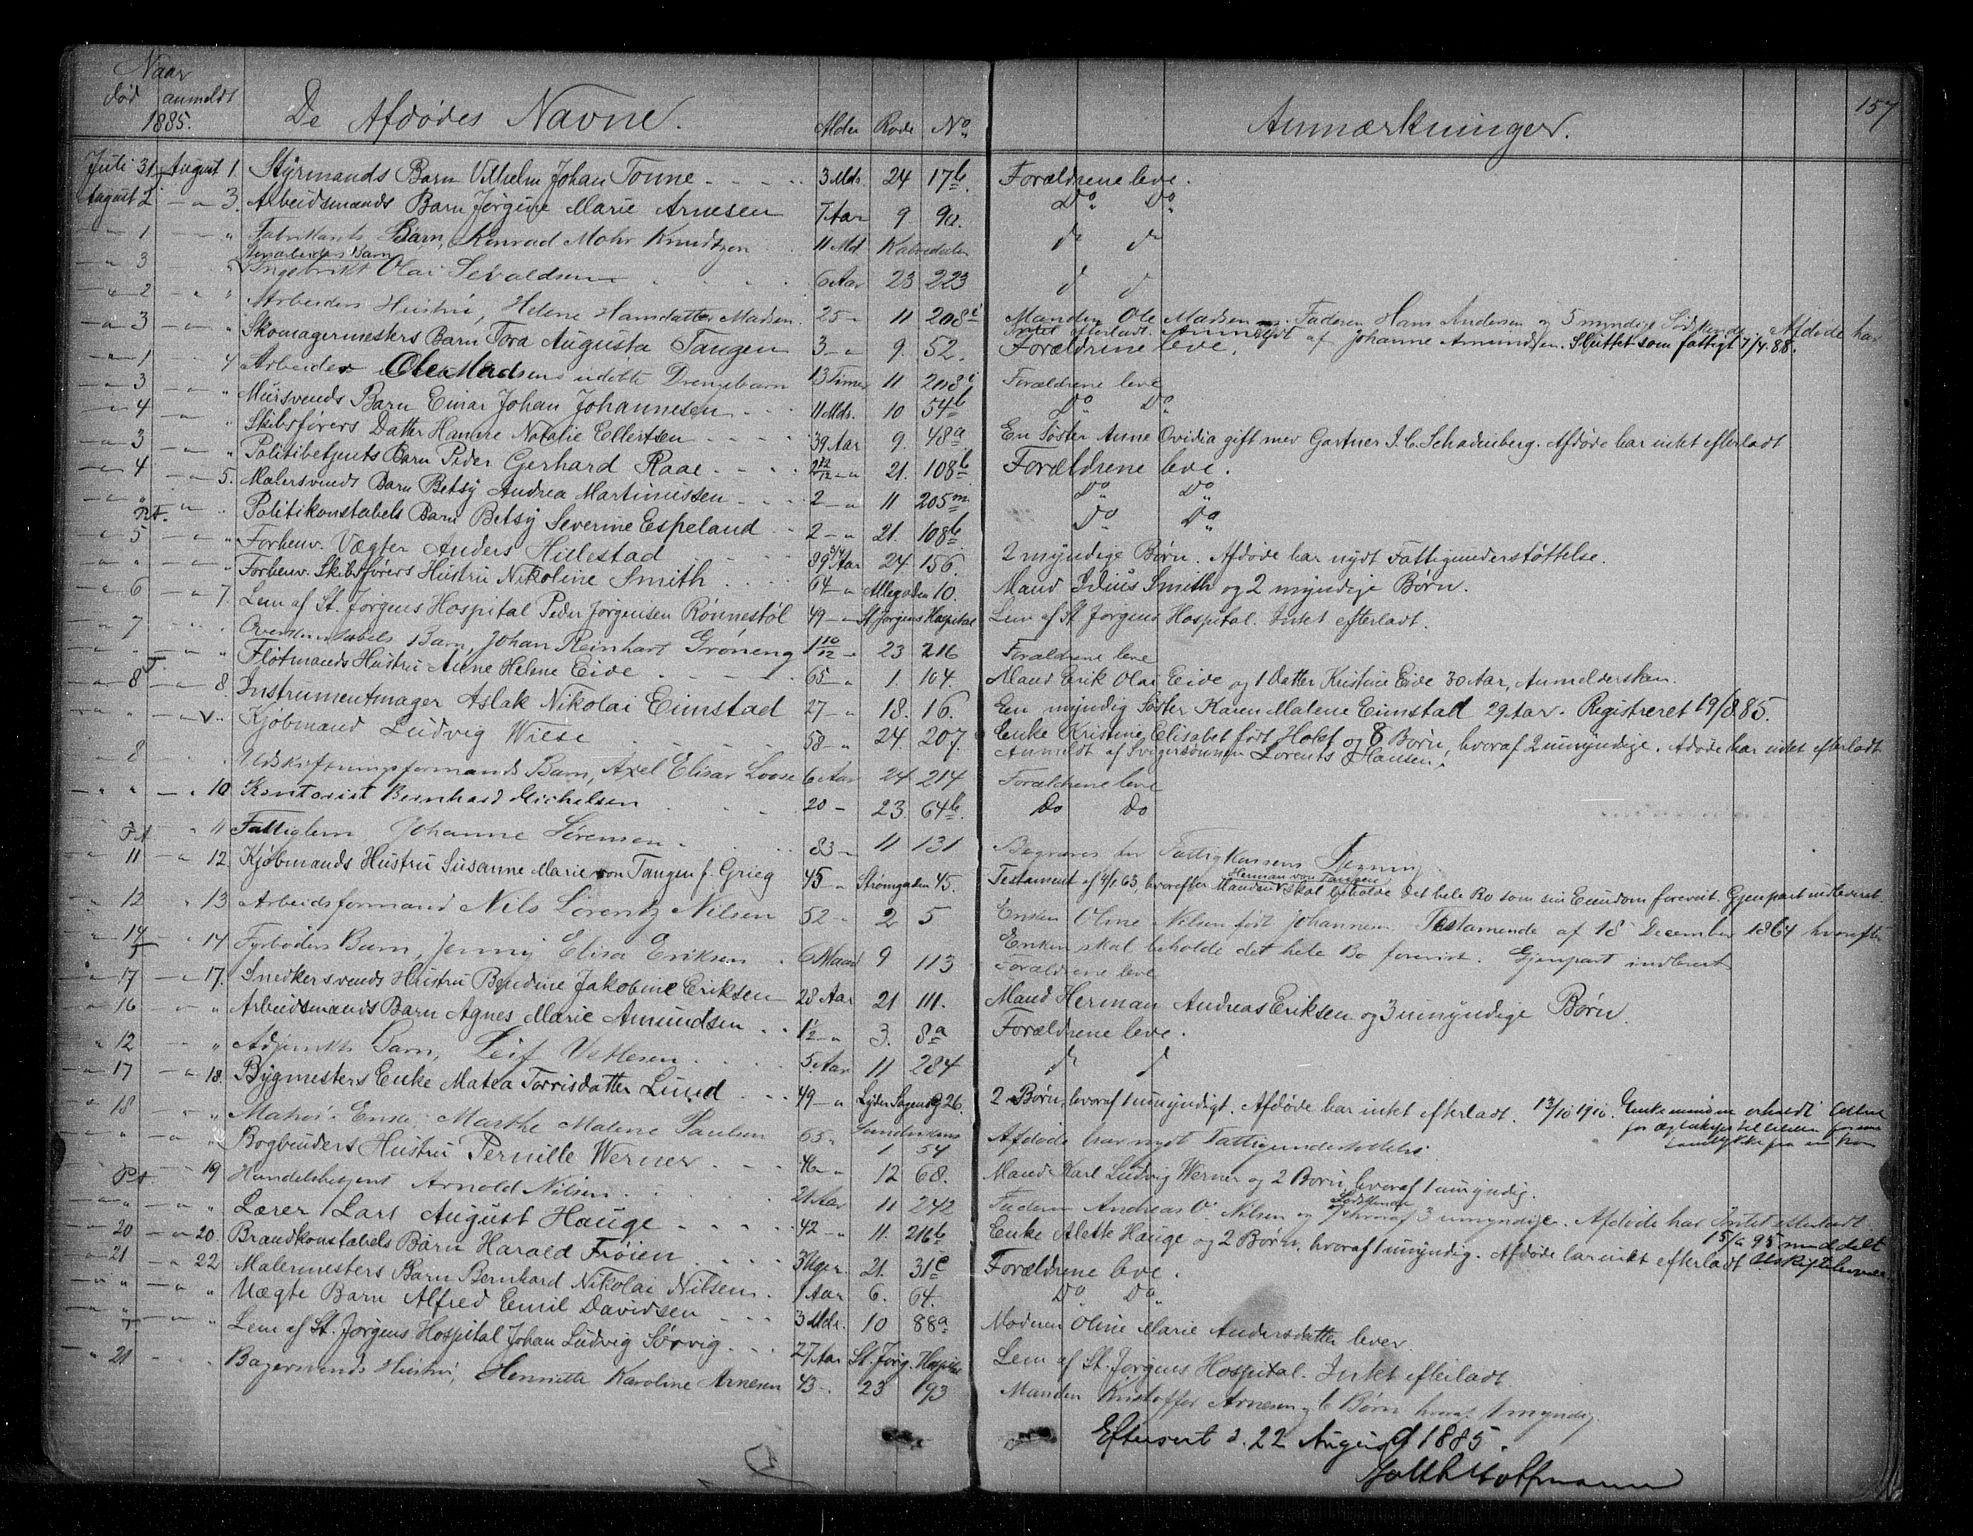 157
Naar
død anmeldt De Afdødes Navne. Alder Rode No Anmærkninger.
1885.
Juli 31 August 1. Styrmands Barn Vilhelm Johan Tonne 3 Mdr. 24 17b Forældrene leve.
August 2 " 3. Arbeidsmands Barn Jørgine Marie Arnesen 7 Aar 9 9a. Do Do
" 1 " " Fabrikants Barn, Konrad Mohr Knudtzon 11 Md Kalvedalen
" 3 " Barn
Ingebrikt Olai Sevaldsen 6 Aar 23 223
" 2 " " Arbeiders Hustru, Helene Hansdatter Madsen 25 " 11 208 Manden Ole Madsen. Faderen Hans Andersen og 5 myndige Sødskende. Afdøde har
Intet efterladt. af Johanne Amundsen. Sluttet som fattigt 7/4.88.
" 3 " " Skomagermesters Barn Tora Augusta Tangen 3 " 9. 52. Forældrene leve.
" 1 " 4 Arbeider Ole Madsens udøbte Drengebarn 13 Timer 11 208 Forældrene leve
" 3 " " Mursvends Barn Einar Johan Johannesen 11 Mdr. 10 54b Do Do
" 4 " " Skibsførers Datter Hanne Natalie Ellertsen 39 Aar 9. 48a En Søster Anne Ovidia gift mev Gartner J. C. Schadenberg. Afdøde har intet efterladt
" 3 " " Politibetjents Barn Peder Gerhard Raae 2 " 21. 108b Forældrene leve.
" 4 " 5. Malersvends Barn Betsy Andrea Martinussen 2 " 11 205m Do Do
" " " Politikonstabels Barn Betsy Severine Espeland 2 " 21. 108b Do Do
" 5 " " Forhenv. Vægter Anders Hillestad 89 Aar 24 156 2 myndige Børn. Afdøde har nydt Fattigunderstøttelse.
" " " Forhenv. Skibsførers Hustru Nikoline Smith 64 " Allegaden 10. Mand Julius Smith og 2 myndige Børn.
" 6 " 7. Lem af St. Jørgens Hospital Peder Jørgensen Rønnestøl 49 " St Jørgens Hospital Lem af St Jørgens Hospital. Intet efterladt.
" 7 " Barn, Johan Reinhart Grøneng 1 10/12 " 23 216 Forældrene leve
" " " Fløtmands Hustru Anne Helene Eide 65 " 1. 104. Mand Erik Olai Eide og 1 Datter Kristine Eide 30 Aar, Anmeldersken.
" 8 " 8. Instrumentmager Aslak Nikolai Eimstad 27 " 18. 16. En myndig Søster Karen Malene Eimstad 29 Aar. Registreret 19/8.85.
" " " Kjøbmand Ludvig Wiese 58 " 24. 207. Enke Kristine Elisabet født Holst og 8 Børn, hvoraf 2 umyndige. Afdøde har intet efterladt
Anmeldt af Svigersønnen Lorents Hansen.
8 Udskiftningsformands Barn, Axel Elisar Loose 6 Aar 24 214 Forældrene leve
" " " 10 Kontorist Bernhard Michelsen 20 " 23. 64b. Do Do
" 11 Fattiglem Johanne Sørensen 83 " 11 131 Begraves for Fattigkassens Regning
" 11 " 12. Kjøbmands Hustru Susanne Marie von Tangen f. Grieg 45 " Strømgaden 45. Testament af 4/1.63, hvorefter Manden Herman von Tangen skal beholde det hele Bo som sin Eiendom foreviist. Gjenpart indleveret.
" 12 " 13 Arbeidsformand Nils Lorentz Nilsen 52 " 2 5 Enken Oline Nilsen født Johannesen Testamende af 18 December 1864 hvorefter
Enken skal beholde det hele Bo forevist. Gjenpart indleveret
" 14 " 14. Fyrbøders Barn, Jenny Elisa Eriksen 6 Maand 9 113 Forældrene leve
" 17 " 17. Snedkersvends Hustru Bendine Jakobine Eriksen 28 Aar 21 111. Mand Herman Andreas Eriksen og 3 umyndige Børn.
" 16 " " Arbeidsmands Barn Agnes Marie Amundsen 1 1/2 " 3. 8a Forældrene leve.
" 12 " Adjunkts Barn, Leif Vetlesen 5 Aar 11 284
" 17 " 18. Bygmesters Enke Matea Torrisdatter Lund 49 " Lyder Sagensg 26. 2 Børn, hvoraf 1 umyndigt. Afdøde har intet efterladt. 13/10 1910.
" 18 " Enke, Marthe Malene Paulsen 65 " 1 54 Afdøde har nydt Fattigunderstøttelse.
" " " Bogbinders Hustru Pernille Werner 46 " 12 68. Mand Karl Ludvig Werner og 2 Børn, hvoraf 1 umyndig.
" 19 Handelsbetjent Arnold Nilsen 21 Aar 11 242 Faderen Andreas O. Nilsen og 7 Sødskende hvoraf 3 umyndige. Afdøde har Intet efterladt.
" " " Lærer Lars August Hauge 42 " 11. 216b Enke Alette Hauge og 2 Børn, hvoraf 1 umyndig. Afdøde har intet efterladt
" 20 " 20. Brandkonstabels Barn Harald Frøien 3 Uger. 21. 31c Forældrene leve.
" 21 " 22 Malermesters Barn Bernhard Nikolai Nilsen 1 Aar 6. 64. Do Do
" " " Uægte Barn Alfred Emil Davidsen 3 Mdr. 10 88a Moderen Oline Marie Andersdatter lever.
" " " Lem af St. Jørgens Hospital Johan Ludvig Sørvig 27 Aar St. Jørg. Hospital Lem af St. Jørgens Hospital. Intet efterladt
" 21 " " Bagersvends Hustru, Henriette Karoline Arnesen 43 " 23 193 Manden Kristoffer Arnesen og 6 Børn hvoraf 1 myndig.
Efterseet d. 22 August 1885.